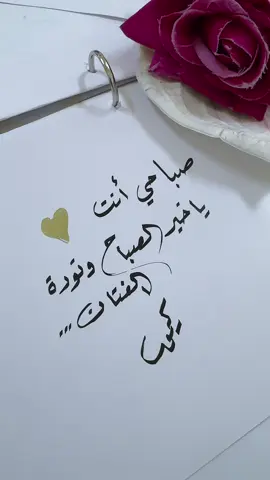 صباحي أنت
يا خير الصباح ونوره
الفتان ...